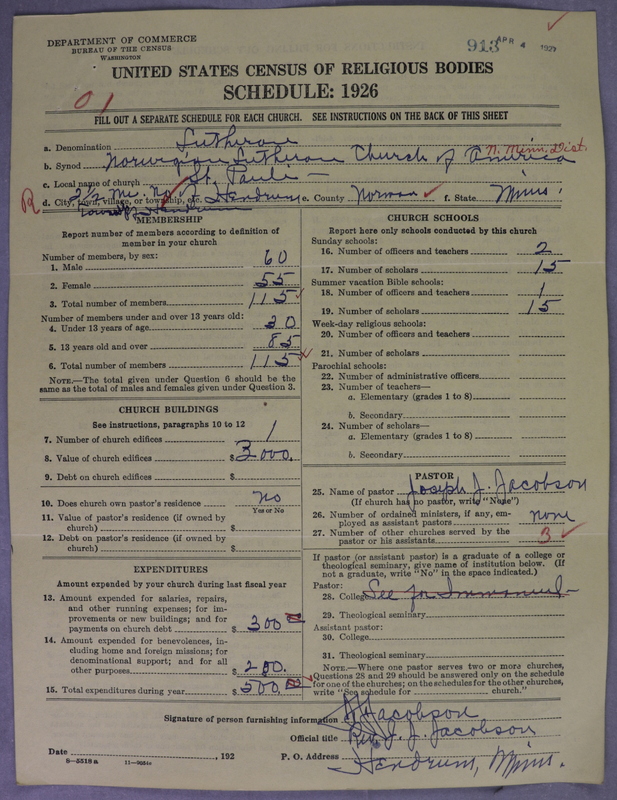 DEPARTMENT OF COMMERCE
BUREAU OF THE CENSUS
WASHINGTON
913 APR 4 1927
UNITED STATES CENSUS OF RELIGIOUS BODIES
SCHEDULE: 1926
01
FILL OUT A SEPARATE SCHEDULE FOR EACH CHURCH. SEE INSTRUCTIONS ON THE BACK OF THIS SHEET
a. Denomination Lutheran
b. Synod Norwegian Lutheran Church of America N. Minn. Dist.
c. Local name of church St. Pauli
R d. City, town, village, or township, etc. 2½ mi. No. of Hendrum e. County Norman f. State Minn.
Hendrum
MEMBERSHIP
Report number of members according to definition of
member in your church
Number of members, by sex:
1. Male 60
2. Female 55
3. Total number of members 115
Number of members under and over 13 years old:
4. Under 13 years of age 30
5. 13 years old and over 85
6. Total number of members 115
NOTE.—The total given under Question 6 should be
same as the total of males and females given under Question 3.
CHURCH BUILDINGS
See instructions, paragraphs 10 to 12
7. Number of church edifices 1
8. Value of church edifices $ 3000.
9. Debt on church edifices $
10. Does church own pastor's residence no
Yes or No
11. Value of pastor's residence (if owned by
church) $
12. Debt on pastor's residence (if owned by
church) $
EXPENDITURES
Amount expended by your church during last fiscal year
13. Amount expended for salaries, repairs,
and other running expenses; for im-
provements or new buildings; and for
payments on church debt $ 300
14. Amount expended for benevolences, in-
cluding home and foreign missions; for
denominational support; and for all
other purposes $ 200.
15. Total expenditures during year $ 500
CHURCH SCHOOLS
Report here only schools conducted by this church
Sunday schools:
16. Number of officers and teachers 2
17. Number of scholars 15
Summer vacation Bible schools:
18. Number of officers and teachers 1
19. Number of scholars 15
Week-day religious schools:
20. Number of officers and teachers
21. Number of scholars
Parochial schools:
22. Number of administrative officers
23. Number of teachers—
a. Elementary (grades 1 to 8)
b. Secondary
24. Number of scholars—
a. Elementary (grades 1 to 8)
b. Secondary
PASTOR
25. Name of pastor Joseph J. Jacobson
(If church has no pastor, write "None")
26. Number of ordained ministers, if any, em-
ployed as assistant pastors none
27. Number of other churches served by the
pastor or his assistants 3
If pastor (or assistant pastor) is a graduate of a college or
theological seminary, give name of institution below. (If
not a graduate, write "No" in the space indicated.)
Pastor:
28. College See for Immanuel
29. Theological seminary
Assistant pastor:
30. College
31. Theological seminary
NOTE.—Where one pastor serves two or more churches,
Questions 28 and 29 should be answered only on the schedule
for one of the churches; on the schedules for the other churches,
write "See schedule for church."
Signature of person furnishing information J J Jacobson
Official title Rev. J. J. Jacobson
Date , 192 P. O. Address Hendrum, Minn.
8—5518 a 11—9054